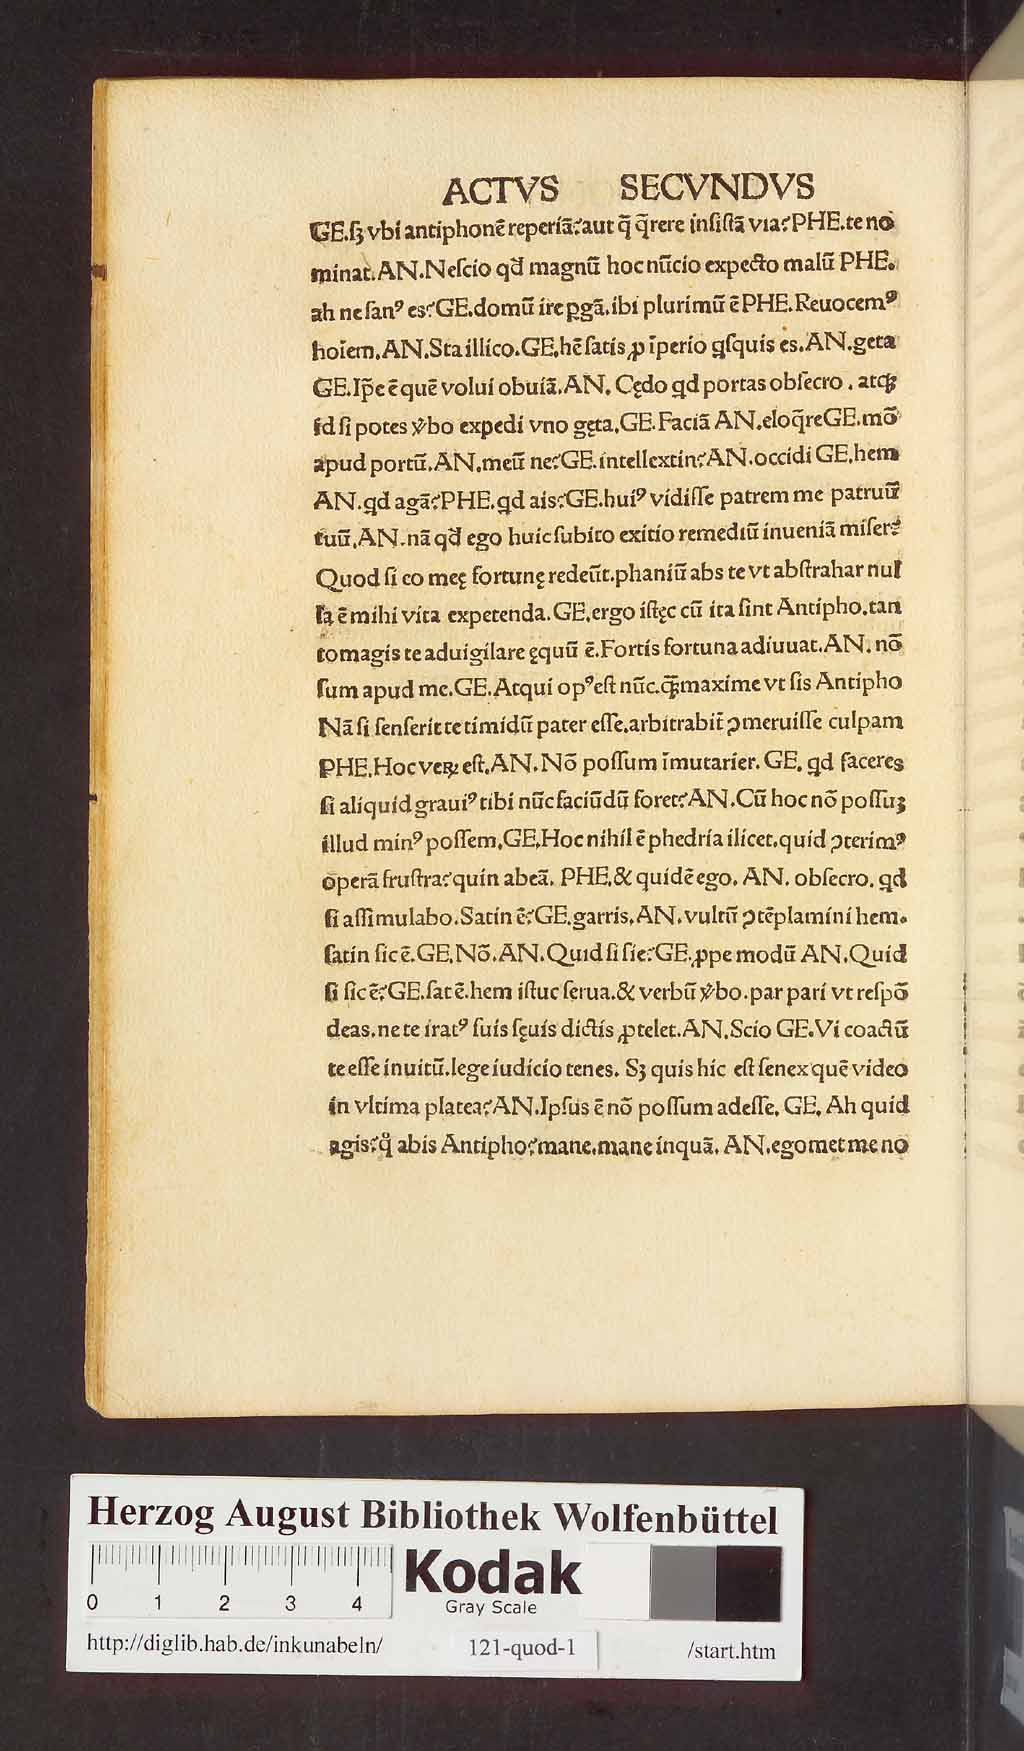 ACTVS SECVNDVS
GE.sꝫ vbi antiphonē reperiā?aut q̄ q̄rere insistā via?PHE.te no
minat.AN.Nescio qđ magnū hoc nūcio expecto malū PHE.
ah ne sanꝰ es?GE.domū ire ꝑgā.ibi plurimū ē PHE.Reuocemꝰ
hoīem.AN.Sta illico.GE.hē satis ꝓ īperio ꝗsquis es.AN.geta
GE.Ip̄e ē quē volui obuiā.AN. Cędo ꝗd portas obsecro . atqꝫ
id si potes v̾bo expedi vno gęta.GE.Faciā AN.eloq̄re GE.mō
apud portū.AN.meū ne?GE.intellextin?AN.occidi GE.hem
AN.ꝗd agā?PHE.ꝗd ais?GE.huiꝰ vidisse patrem me patruū
tuū.AN.nā qđ ego huic subito exitio remediū inueniā miser?
Quod si eo meę fortunę redeūt.phaniū abs te vt abstrahar nul
la ē mihi vita expetenda.GE.ergo istęc cū ita sint Antipho.tan
to magis te aduigilare ęquū ē.Fortis fortuna adiuuat.AN. nō
sum apud me.GE.Atqui opꝰ est nūc.qꝫ̄ maxime vt sis Antipho
Nā si senserit te timidū pater esse.arbitrabit̄ ꝯmeruisse culpam
PHE.Hoc veꝝ est.AN.Nō possum īmutarier. GE. ꝗd faceres
si aliquid grauiꝰ tibi nūc faciūdū foret?AN.Cū hoc nō possuꝫ
illud minꝰ possem.GE.Hoc nihil ē phedria ilicet.quid ꝯterimꝰ
operā frustra?quin abeā. PHE.& quidē ego. AN. obsecro. ꝗd
si assimulabo.Satin ē?GE.garris.AN.vultū ꝯtēplamini hem.
satin sic ē.GE.Nō.AN.Quid si sic?GE.ꝓpe modū AN.Quid
si sic ē?GE.sat ē.hem istuc serua.& verbū v̾bo.par pari vt respō
deas.ne te iratꝰ suis sęuis dictis ꝓtelet.AN.Scio GE.Vi coactū
te esse inuitū.lege iudicio tenes. Sꝫ quis hic est senex quē video
in vltima platea?AN.Ipsus ē nō possum adesse. GE. Ah quid
agis?qͦ abis Antipho?mane.mane inquā. AN.egomet me no
Herzog August Bibliothek Wolfenbüttel
0 1 2 3 4
Kodak
Gray Scale
http://diglib.hab.de/inkunabeln/ 121-quod-1 /start.htm